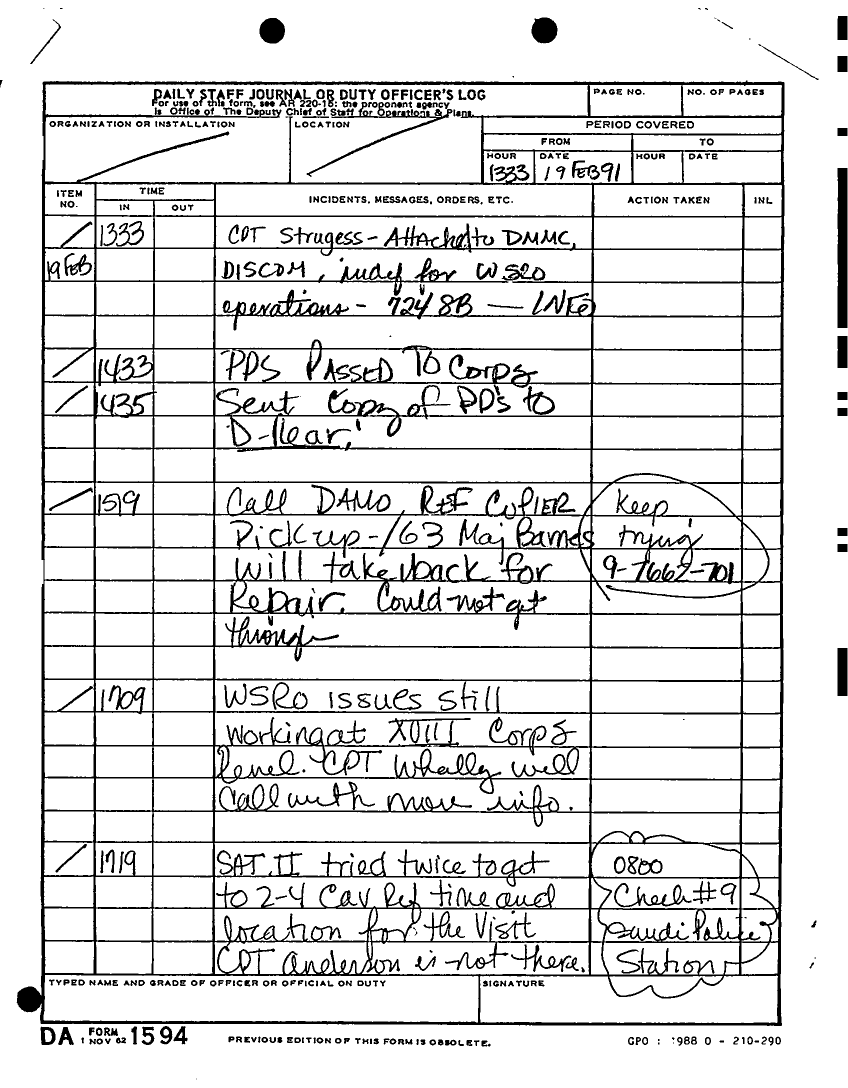 DAILY STAFF JOURNAL OR DUTY OFFICER'S LOG
For use of this form, see AR 220-15; the proponent agency
is Office of The Deputy Chief of Staff for Operations & Plans.
PAGE NO.
NO. OF PAGES
ORGANIZATION OR INSTALLATION
LOCATION
PERIOD COVERED
FROM
TO
HOUR
DATE
HOUR
DATE
1333
19 FEB 91
ITEM NO.
TIME
IN
OUT
INCIDENTS, MESSAGES, ORDERS, ETC.
ACTION TAKEN
INL
1333 CPT Strugess - Attached to DMMC,
19 FEB DISCOM, indef for WSRO
operations - 724 SB — INFO
1433 PDS PASSED TO Corps
1435 Sent Copy of PD's to
D-Rear.
1519 Call DAMO REF COPIER Keep
Pickup - 163 Maj Barnes trying
will take back for 9-7662-701
Repair. Could not get
through
1709 WSRO issues still
working at XVIII Corps
level. CPT Whally will
call with more info.
1719 SAT. II tried twice to get 0800
to 2-4 Cav Ref time and Check #9
location for the Visit Saudi Police
CPT Anderson is not there. Station
TYPED NAME AND GRADE OF OFFICER OR OFFICIAL ON DUTY
SIGNATURE
DA FORM 1 NOV 62 1594
PREVIOUS EDITION OF THIS FORM IS OBSOLETE.
GPO : 1988 O - 210-290